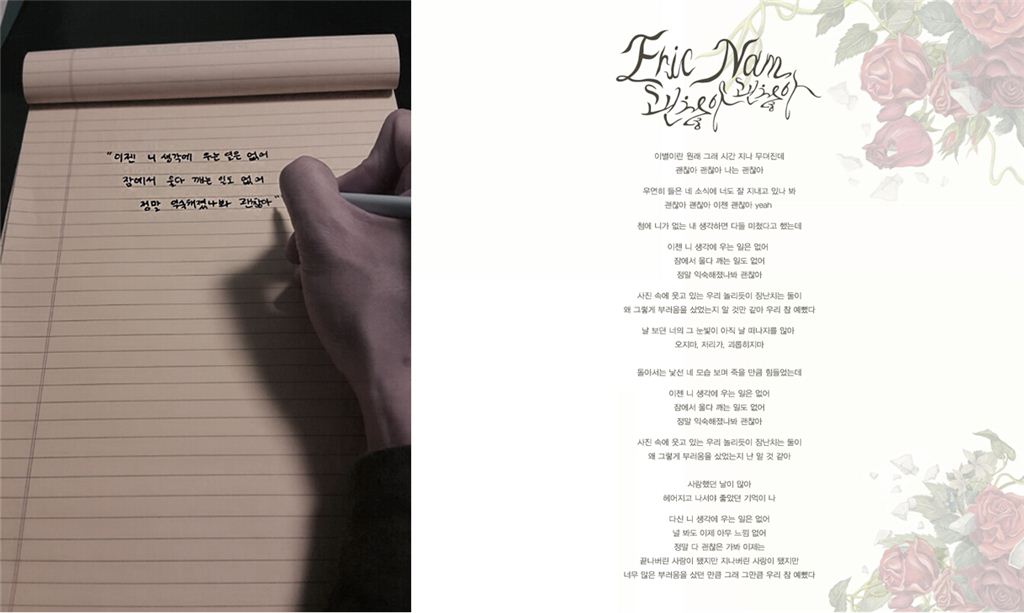 "이젠 니 생각에 우는 일은 없어
잠에서 울다 깨는 일도 없어
정말 익숙해졌나봐 괜찮아"
Eric Nam
괜찮아 괜찮아
이별이란 원래 그래 시간 지나 무뎌진데
괜찮아 괜찮아 나는 괜찮아
우연히 들은 네 소식에 너도 잘 지내고 있나 봐
괜찮아 괜찮아 이젠 괜찮아 yeah
첨에 니가 없는 내 생각하면 다들 미쳤다고 했는데
이젠 니 생각에 우는 일은 없어
잠에서 울다 깨는 일도 없어
정말 익숙해졌나봐 괜찮아
사진 속에 웃고 있는 우리 놀리듯이 장난치는 둘이
왜 그렇게 부러움을 샀었는지 알 것만 같아 우리 참 예뻤다
날 보던 너의 그 눈빛이 아직 날 떠나지를 않아
오지마, 저리가, 괴롭히지마
돌아서는 낯선 네 모습 보며 죽을 만큼 힘들었는데
이젠 니 생각에 우는 일은 없어
잠에서 울다 깨는 일도 없어
정말 익숙해졌나봐 괜찮아
사진 속에 웃고 있는 우리 놀리듯이 장난치는 둘이
왜 그렇게 부러움을 샀었는지 난 알 것 같아
사랑했던 날이 많아
헤어지고 나서야 좋았던 기억이 나
다신 니 생각에 우는 일은 없어
널 봐도 이제 아무 느낌 없어
정말 다 괜찮은 가봐 이제는
끝나버린 사랑이 됐지만 지나버린 사랑이 됐지만
너무 많은 부러움을 샀던 만큼 그래 그만큼 우리 참 예뻤다